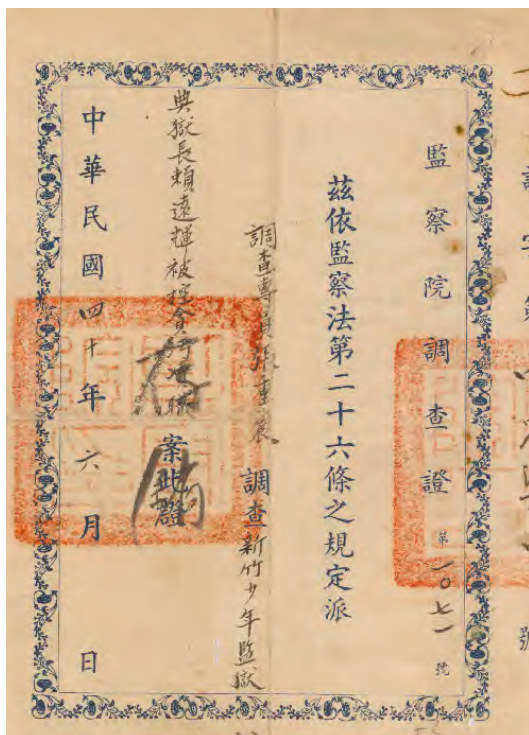 監察院調查證 第一〇七一號
茲依監察法第二十六條之規定派
調查專員張重 調查新竹少年監獄
典獄長賴遠輝被控貪污瀆職案此證
中華民國四十年六月 日
號